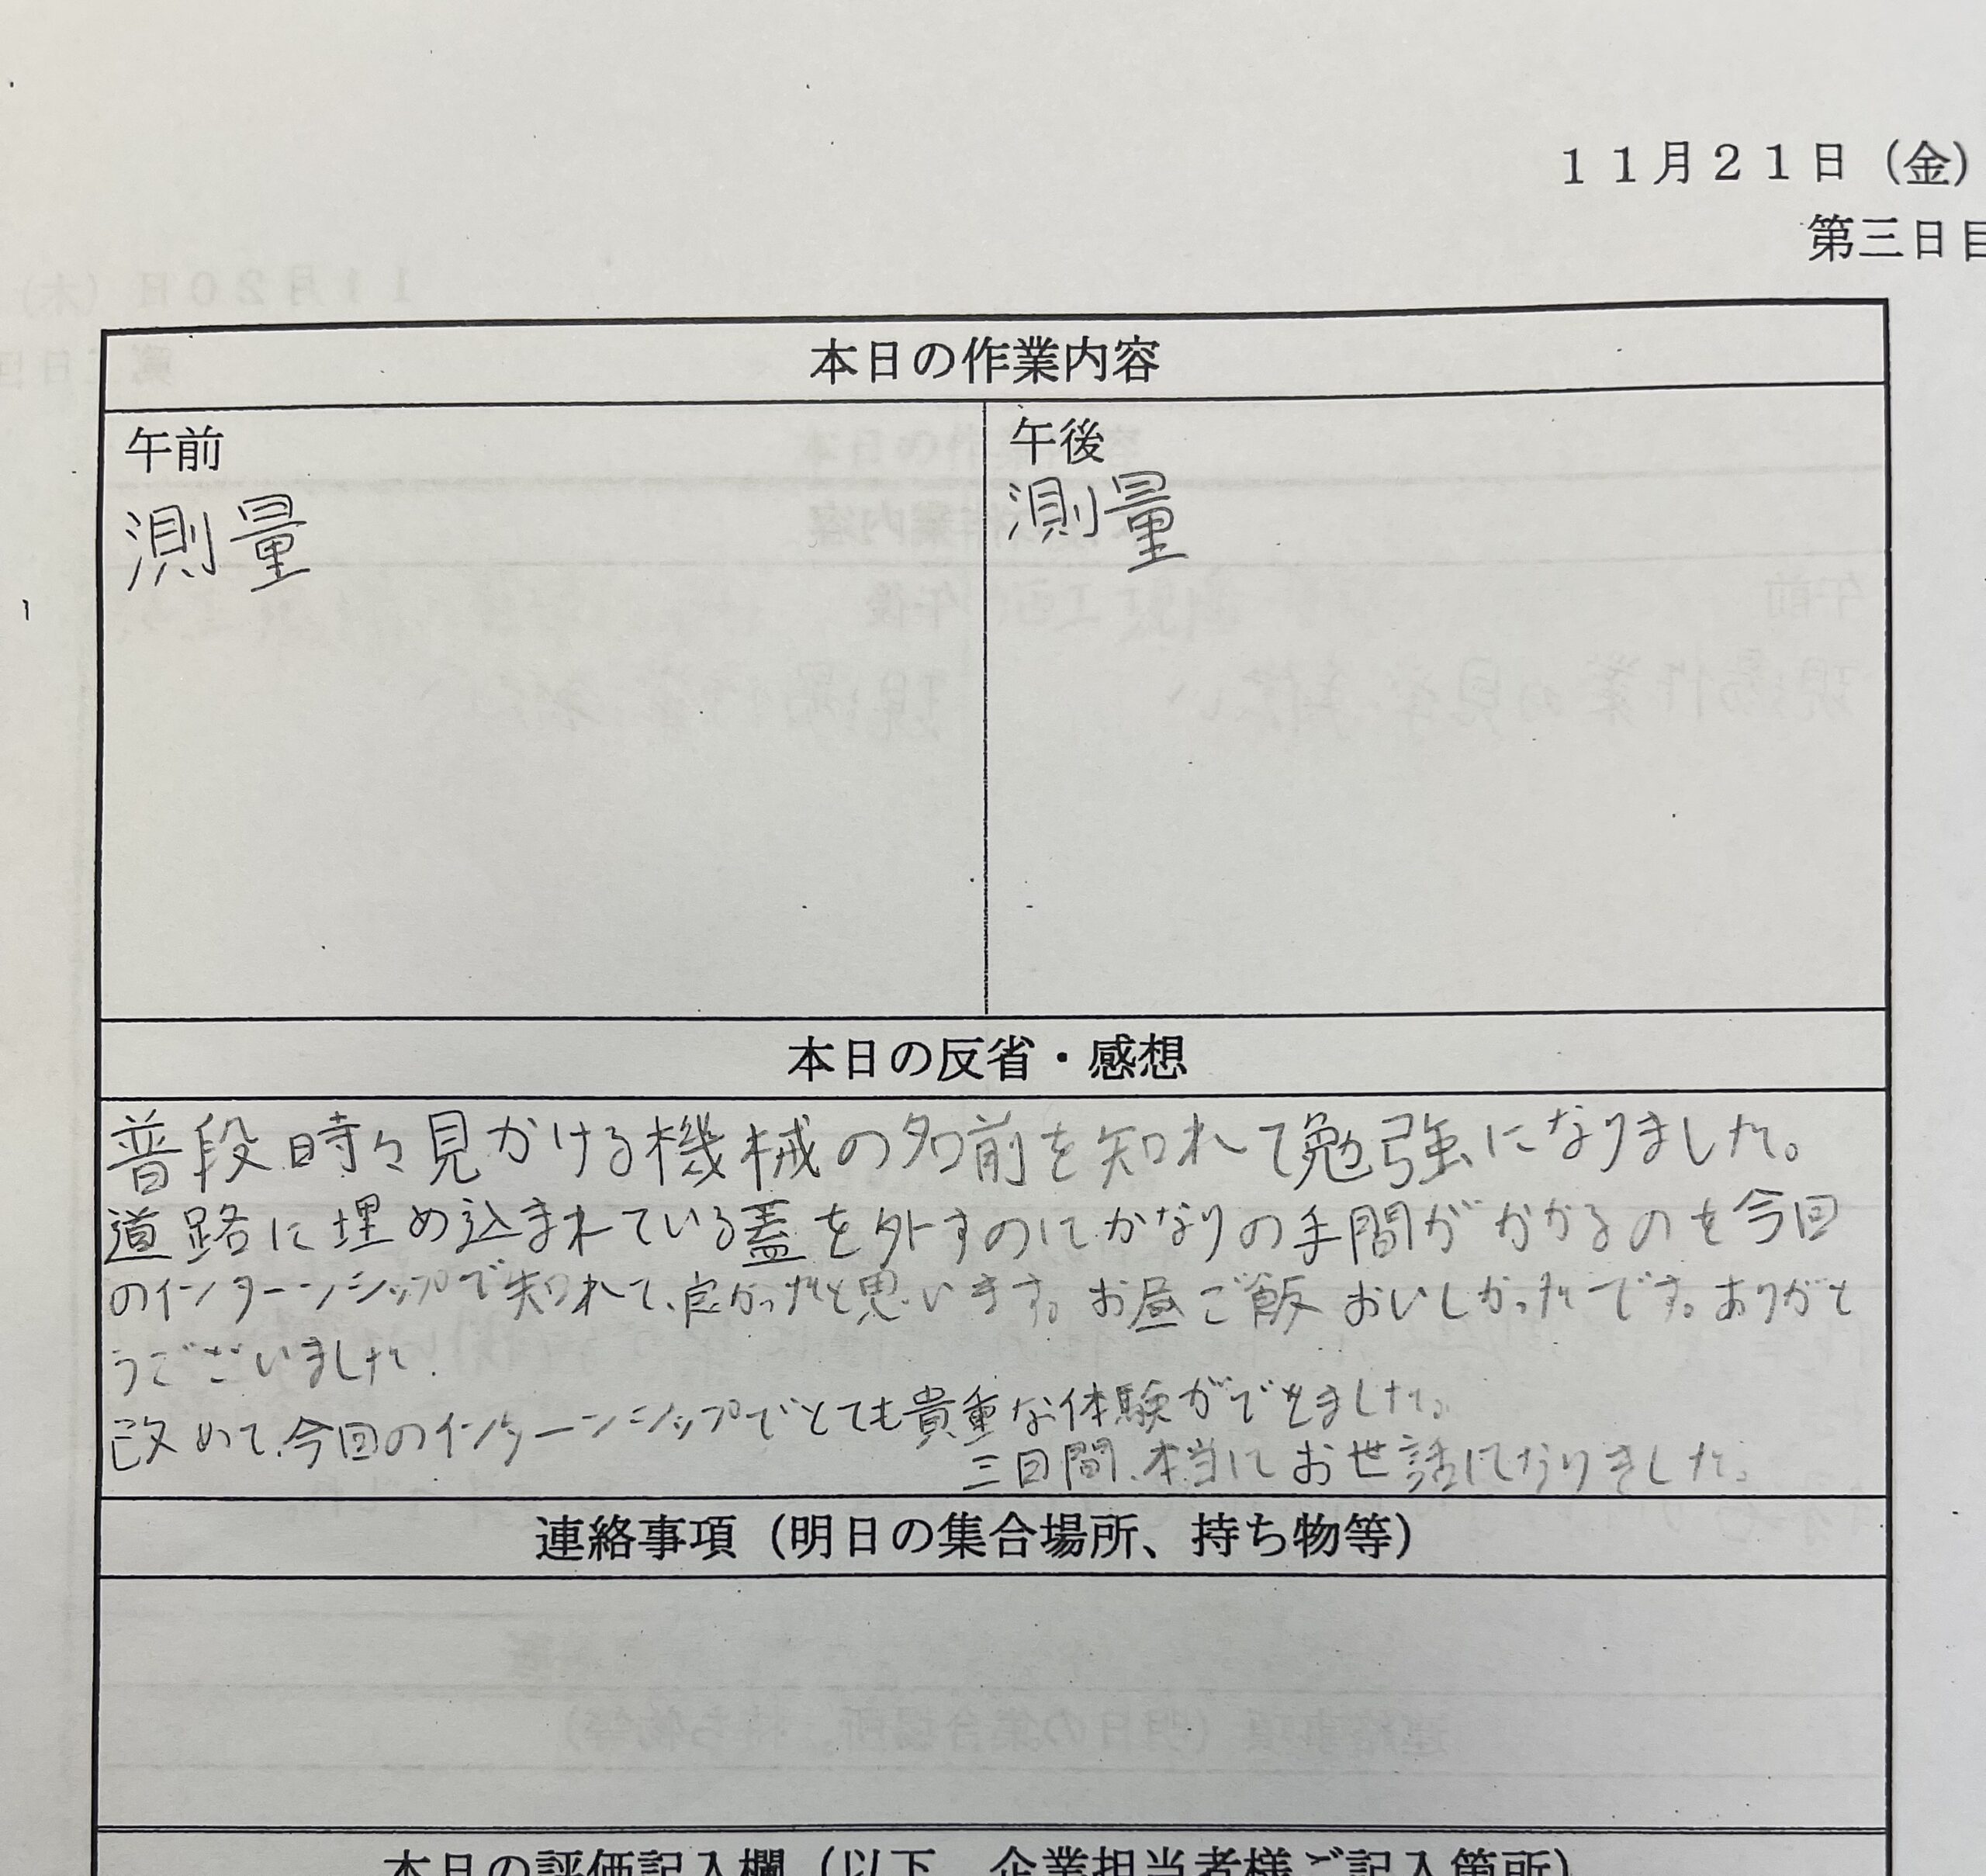 11月21日（金）
第三日目
本日の作業内容
午前
測量
午後
測量
本日の反省・感想
普段時々見かける機械の名前を知れて勉強になりました。
道路に埋め込まれている蓋を外すのにかなりの手間がかかるのを今回
のインターンシップで知れて、良かったと思います。お昼ご飯おいしかったです。ありがと
うございました。
改めて、今回のインターンシップでとても貴重な体験ができました。
三日間、本当にお世話になりました。
連絡事項（明日の集合場所、持ち物等）
本日の評価記入欄（以下、企業担当者様ご記入箇所）